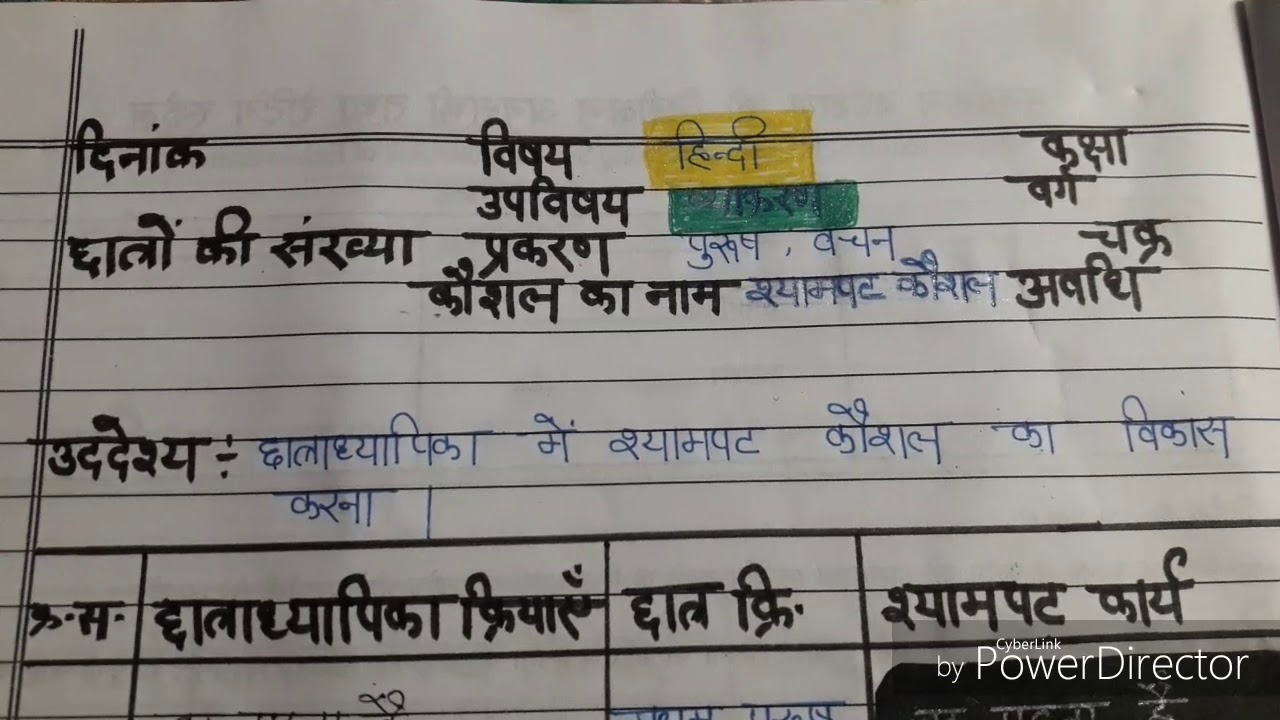 दिनांक विषय हिन्दी कक्षा
उपविषय व्याकरण वर्ग
छात्रों की संख्या प्रकरण पुरूष , वचन चक्र
कौशल का नाम श्यामपट कौशल अवधि
उददेश्य :- छात्राध्यापिका में श्यामपट कौशल का विकास
करना |
क्र.स. छात्राध्यापिका क्रियाएँ छात्र क्रि. श्यामपट कार्य
CyberLink
by PowerDirector